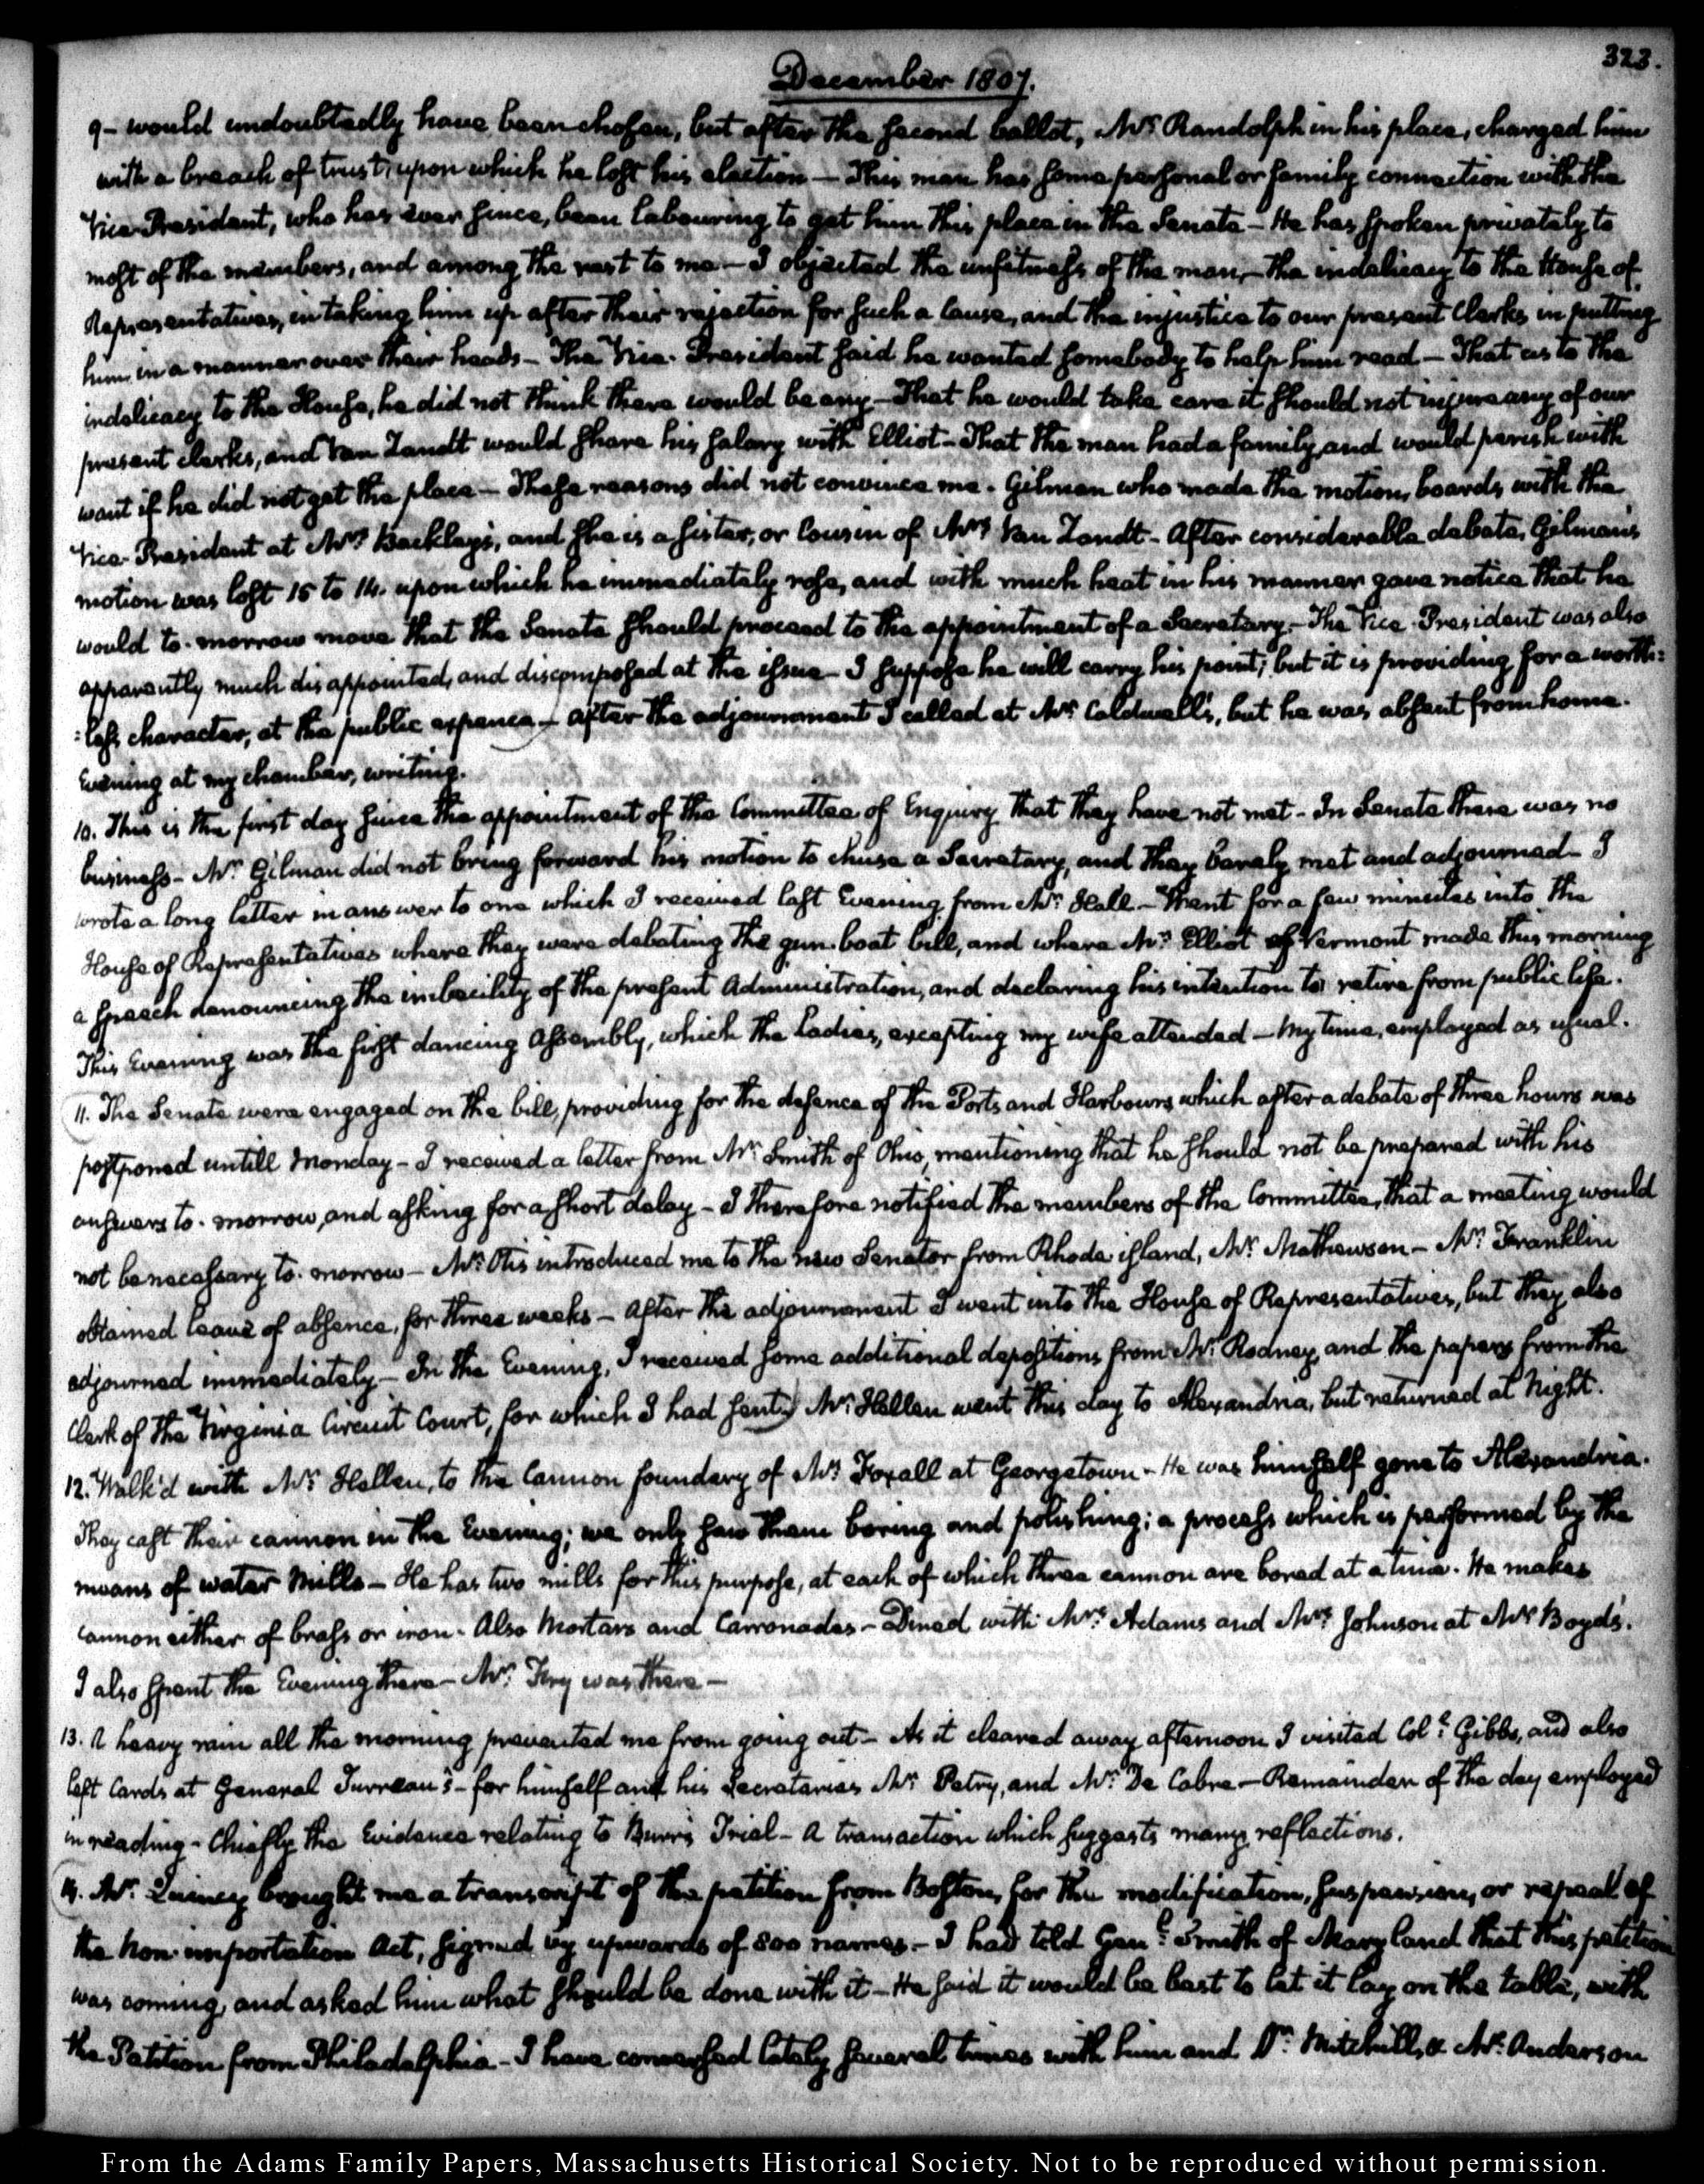 323.
December 1807.
9– would undoubtedly have been chosen, but after the second ballot, Mr. Randolph in his place, charged him
with a breach of trust, upon which he lost his election — This man has some personal or family connection with the
Vice-President, who has ever since, been labouring to get him this place in the Senate – He has spoken privately to
most of the members, and among the rest to me — I objected the unfitness of the man, – the indelicacy to the House of
Representatives, in taking him up after their rejection for such a cause, and the injustice to our present Clerks in putting
him in a manner over their heads – The Vice-President said he wanted somebody to help him read — That as to the
indelicacy to the House, he did not think there would be any – That he would take care it should not injure any of our
present clerks, and Van Zandt would share his salary with Elliot – That the man had a family, and would perish with
want if he did not get the place — These reasons did not convince me. Gilman who made the motion, boards with the
Vice-President at Mrs. Beckley's, and she is a sister, or Cousin of Mrs. Van Zandt – After considerable debate, Gilman's
motion was lost 15 to 14. upon which he immediately rose, and with much heat in his manner gave notice that he
would to-morrow move that the Senate should proceed to the appointment of a Secretary. – The Vice-President was also
apparently much disappointed, and discomposed at the issue – I suppose he will carry his point; but it is providing for a worth=
=less character, at the public expence – After the adjournment I called at Mr. Caldwell's, but he was absent from home.
Evening at my chamber, writing.
10. This is the first day since the appointment of the Committee of Enquiry that they have not met – In Senate there was no
business – Mr. Gilman did not bring forward his motion to chuse a Secretary, and they barely met and adjourned – I
wrote a long letter in answer to one which I received last Evening from Mr. Hall – Went for a few minutes into the
House of Representatives where they were debating the gun-boat bill, and where Mr. Elliot of Vermont made this morning
a speech denouncing the imbecility of the present Administration, and declaring his intention to retire from public life.
This Evening was the first dancing Assembly, which the Ladies, excepting my wife attended — My time, employed as usual.
11. The Senate were engaged on the bill, providing for the defence of the Ports and Harbours which after a debate of three hours was
postponed untill Monday – I received a letter from Mr. Smith of Ohio, mentioning that he should not be prepared with his
answers to-morrow, and asking for a short delay – I therefore notified the members of the Committee, that a meeting would
not be necessary to-morrow — Mr. Otis introduced me to the new Senator from Rhode island, Mr. Mathewson – Mr. Franklin
obtained leave of absence, for three weeks – After the adjournment I went into the House of Representatives, but they also
adjourned immediately — In the Evening, I received some additional depositions from Mr. Rodney, and the papers from the
Clerk of the Virginia Circuit Court, for which I had sent. Mr. Hellen went this day to Alexandria, but returned at Night.
12. Walk'd with Mr. Hellen, to the Cannon foundery of Mr. Foxall at Georgetown – He was himself gone to Alexandria.
They cast their cannon in the Evening; we only saw them boring and polishing; a process which is performed by the
means of water Mills — He has two mills for this purpose, at each of which three cannon are bored at a time. He makes
Cannon either of brass or iron. Also Mortars and Carronades – Dined with Mrs. Adams and Mrs. Johnson at Mr. Boyd's.
I also spent the Evening there – Mr. was there —
13. A heavy rain all the morning prevented me from going out – As it cleared away afternoon I visited Coll. Gibbs, and also
left Cards at General Turreau's – for himself and his Secretaries Mr. Petry, and Mr. De Cabre — Remainder of the day employed
in reading – Chiefly the Evidence relating to Burr's Trial – A transaction which suggests many reflections.
14. Mr. Quincy brought me a transcript of the petition from Boston, for the modification, suspension, or repeal of
the Non-importation Act, signed by upwards of 800 names. – I had told Genl. Smith of Maryland that this petition
was coming, and asked him what should be done with it – He said it would be best to let it lay on the table, with
the Petition from Philadelphia – I have conversed lately several times with him and Dr. Mitchill, & Mr. Anderson
From the Adams Family Papers, Massachusetts Historical Society. Not to be reproduced without permission.